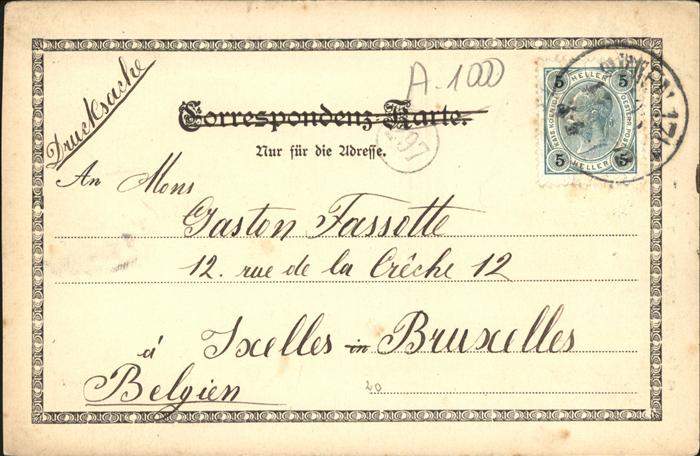 Drucksache
A-1000
Correspondenz-Karte.
297
Nur für die Adresse.
5 HELLER 5
5 HELLER 5
WIEN
17/1
An Mons
Gaston Fassotte
12. rue de la Crêche 12
á Ixelles-in-Bruxelles
Belgien
20